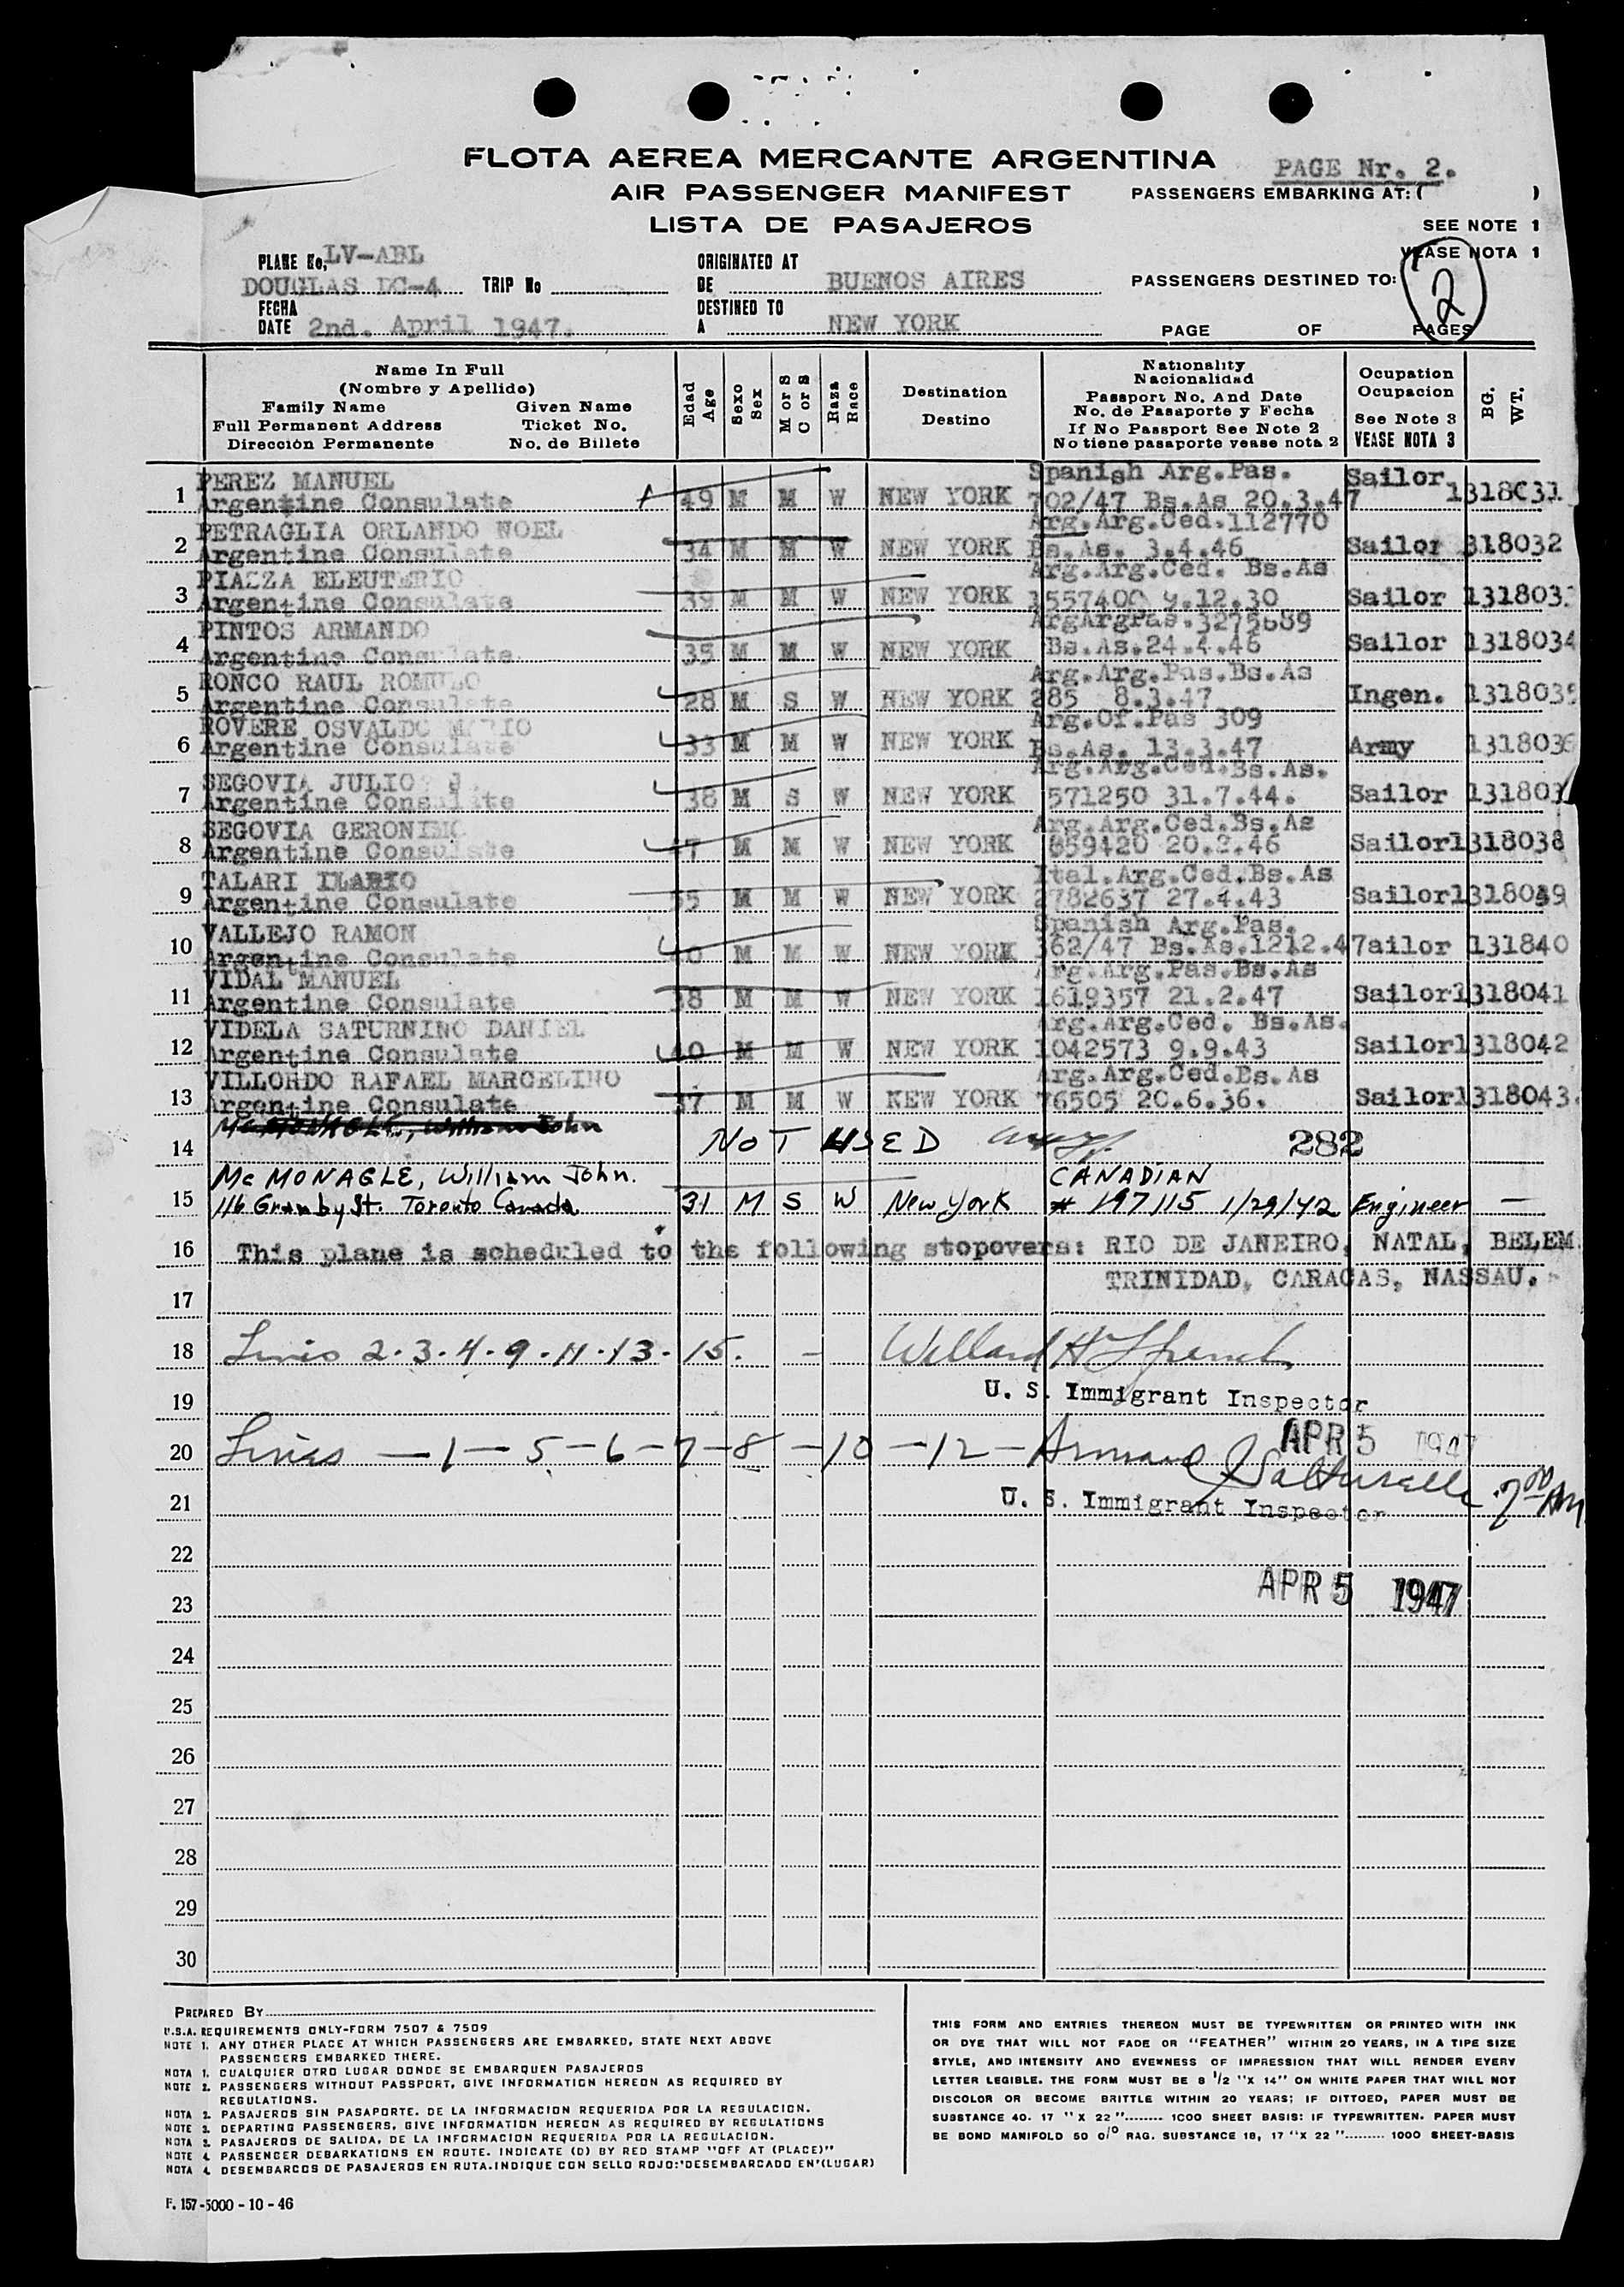 FLOTA AEREA MERCANTE ARGENTINA
PAGE Nr. 2.
AIR PASSENGER MANIFEST
PASSENGERS EMBARKING AT: ( )
LISTA DE PASAJEROS
SEE NOTE 1
VEASE NOTA 1
PLANE No, LV-ABL
ORIGINATED AT
DOUGLAS DC-4 TRIP No
DE BUENOS AIRES
PASSENGERS DESTINED TO:
2
FECHA
DESTINED TO
DATE 2nd. April 1947.
A NEW YORK
PAGE OF PAGES
Name In Full
(Nombre y Apellido)
Family Name Given Name
Full Permanent Address Ticket No.
Dirección Permanente No. de Billete
Edad
Age
Sexo
Sex
M or S
C or S
Raza
Race
Destination
Destino
Nationality
Nacionalidad
Passport No. And Date
No. de Pasaporte y Fecha
If No Passport See Note 2
No tiene pasaporte vease nota 2
Occupation
Ocupacion
See Note 3
VEASE NOTA 3
BG.
WT.
PEREZ MANUEL Spanish Arg.Pas.
1 Argentine Consulate 49 M M W NEW YORK 702/47 Bs.As 20.3.47 Sailor. 1318031
PETRAGLIA ORLANDO NOEL Arg.Arg.Ced.112770
2 Argentine Consulate 34 M M W NEW YORK Bs.As. 3.4.46 Sailor 318032
PIAZZA ELEUTERIO Arg.Arg.Ced. Bs.As
3 Argentine Consulate 39 M M W NEW YORK 1557400 9.12.30 Sailor 131803
PINTOS ARMANDO ArgArgPas.3275689
4 Argentine Consulate 35 M M W NEW YORK Bs.As.24.4.46 Sailor 1318034
RONCO RAUL ROMULO Arg.Arg.Pas.Bs.As
5 Argentine Consulate 28 M S W NEW YORK 285 8.3.47 Ingen. 1318035
ROVERE OSVALDO MARIO Arg.Of.Pas 309
6 Argentine Consulate 33 M M W NEW YORK Bs.As. 13.3.47 Army 1318036
SEGOVIA JULIO J. Arg.Arg.Ced.Bs.As.
7 Argentine Consulate 38 M S W NEW YORK 571250 31.7.44. Sailor 131803
SEGOVIA GERONIMO Arg.Arg.Ced.Bs.As
8 Argentine Consulate 47 M M W NEW YORK 859420 20.2.46 Sailor1318038
TALARI ILARIO Ital.Arg.Ced.Bs.As
9 Argentine Consulate 55 M M W NEW YORK 2782637 27.4.43 Sailor1318039
VALLEJO RAMON Spanish Arg.Pas.
10 Argentine Consulate 40 M M W NEW YORK 362/47 Bs.As.1212.47ailor 131840
VIDAL MANUEL Arg.Arg.Pas.Bs.As
11 Argentine Consulate 38 M M W NEW YORK 1619357 21.2.47 Sailor1318041
VIDELA SATURNINO DANIEL Arg.Arg.Ced. Bs.As.
12 Argentine Consulate 40 M M W NEW YORK 1042573 9.9.43 Sailor1318042
VILLORDO RAFAEL MARCELINO Arg.Arg.Ced.Bs.As
13 Argentine Consulate 37 M M W NEW YORK 76505 20.6.36. Sailor1318043.
McMONAGLE, William John
14 NOT USED 282
McMONAGLE, William John. CANADIAN
15 116 Granby St. Toronto Canada 31 M S W New York # 197115 1/29/42 Engineer —
16 This plane is scheduled to the following stopovers: RIO DE JANEIRO, NATAL, BELEM
TRINIDAD, CARACAS, NASSAU.
17
18 Lines 2. 3. 4. 9. 11. 13. 15. - Willard H French
19 U. S. Immigrant Inspector
APR 5 1947
20 Lines — 1 — 5 — 6 — 7 — 8 — 10 — 12 — Armand J
21 U. S. Immigrant Inspector 7 00 AM
22
APR 5 1947
23
24
25
26
27
28
29
30
PREPARED BY
U.S.A. REQUIREMENTS ONLY-FORM 7507 & 7509
NOTE 1. ANY OTHER PLACE AT WHICH PASSENGERS ARE EMBARKED, STATE NEXT ABOVE
PASSENGERS EMBARKED THERE.
NOTA 1. CUALQUIER OTRO LUGAR DONDE SE EMBARQUEN PASAJEROS
NOTE 2. PASSENGERS WITHOUT PASSPORT, GIVE INFORMATION HEREON AS REQUIRED BY
REGULATIONS.
NOTA 2. PASAJEROS SIN PASAPORTE. DE LA INFORMACION REQUERIDA POR LA REGULACION.
NOTE 3. DEPARTING PASSENGERS, GIVE INFORMATION HEREON AS REQUIRED BY REGULATIONS
NOTA 3. PASAJEROS DE SALIDA, DE LA INFORMACION REQUERIDA POR LA REGULACION.
NOTE 4. PASSENGER DEBARKATIONS EN ROUTE. INDICATE (D) BY RED STAMP "OFF AT (PLACE)"
NOTA 4. DESEMBARCOS DE PASAJEROS EN RUTA.INDIQUE CON SELLO ROJO:'DESEMBARCADO EN'(LUGAR)
THIS FORM AND ENTRIES THEREON MUST BE TYPEWRITTEN OR PRINTED WITH INK
OR DYE THAT WILL NOT FADE OR "FEATHER" WITHIN 20 YEARS, IN A TIPE SIZE
STYLE, AND INTENSITY AND EVENNESS OF IMPRESSION THAT WILL RENDER EVERY
LETTER LEGIBLE. THE FORM MUST BE 8 1/2 "X 14" ON WHITE PAPER THAT WILL NOT
DISCOLOR OR BECOME BRITTLE WITHIN 20 YEARS; IF DITTOED, PAPER MUST BE
SUBSTANCE 40. 17 " X 22 "........ 1000 SHEET BASIS: IF TYPEWRITTEN. PAPER MUST
BE BOND MANIFOLD 50 0/0 RAG. SUBSTANCE 18, 17 "X 22 "......... 1000 SHEET-BASIS
F. 157-5000-10-46